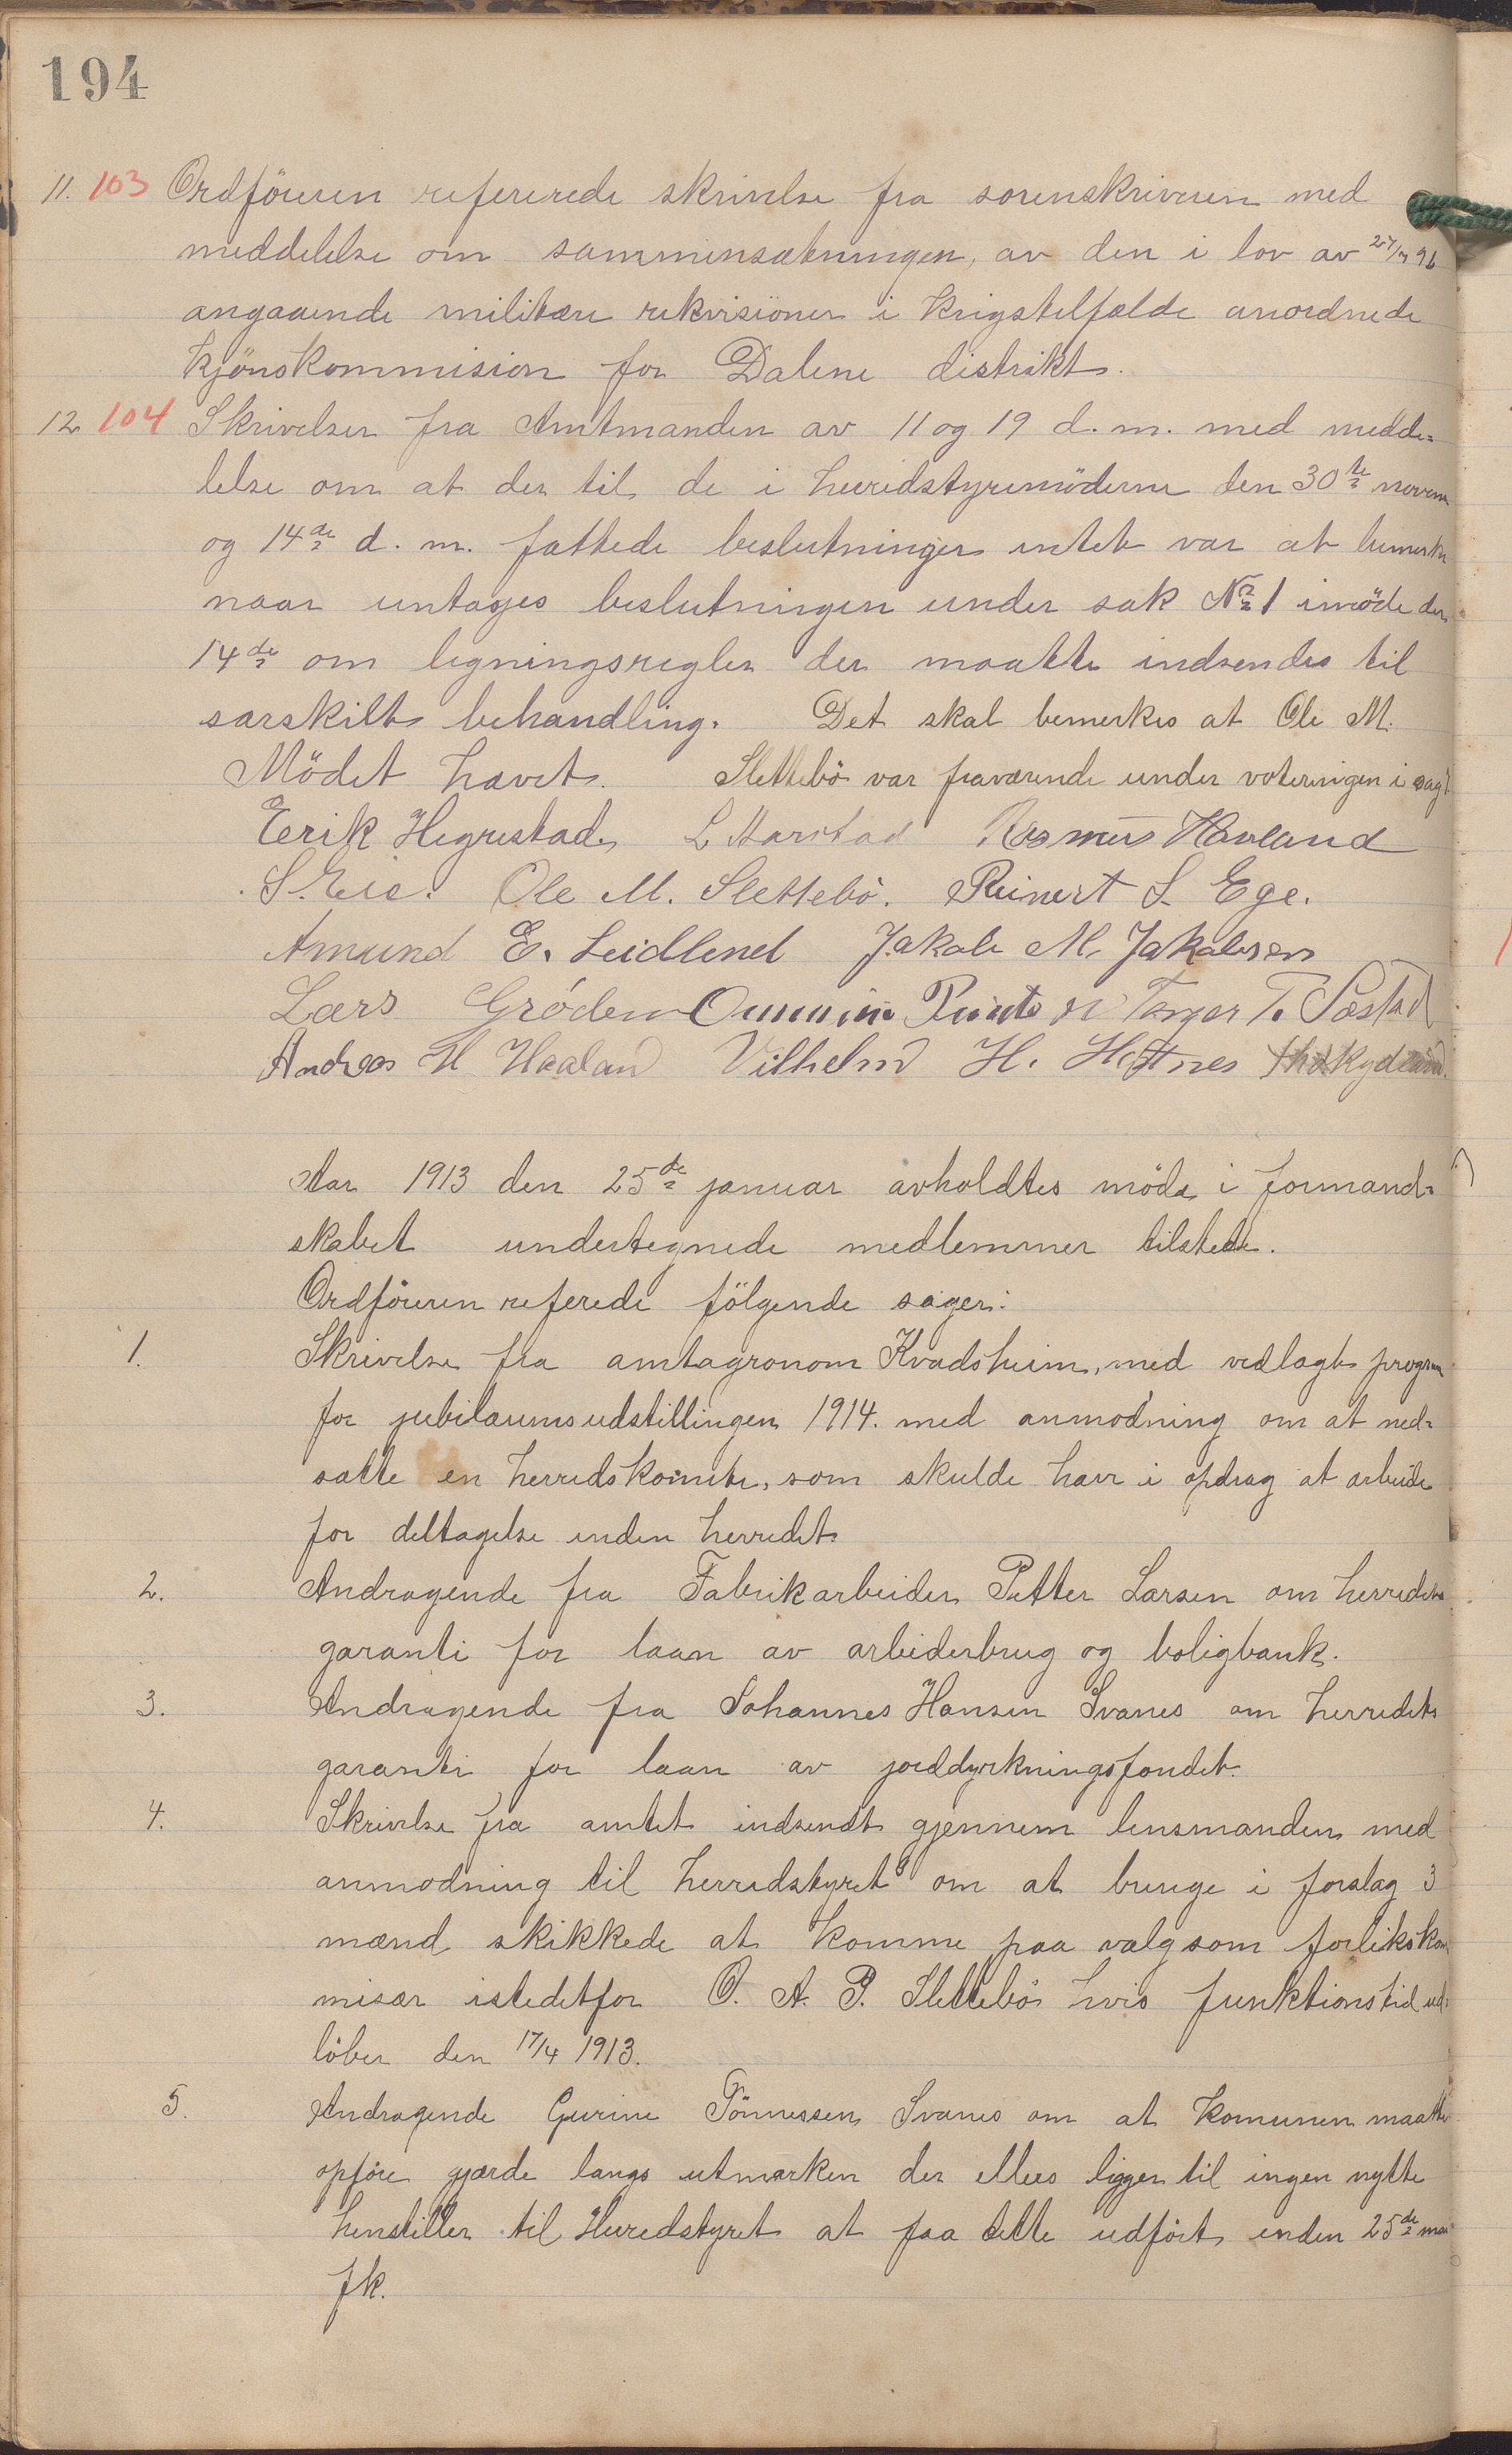 194
11. 103 Ordföreren refererede skrivelse fra sorenskriveren med
meddelelse om sammensætningen, av den i lov av 27/7 96
angaaende militære rekvisioner i krigstilfælde anordnede
skjönskommision for Dalene distrikt.
12 104 Skrivelser fra Amtmanden av 11 og 19 d.m. med medde=
lelse om at der til de i herredstyremöderne den 30te novem
og 14de d.m. fattede beslutninger intet var at bemerke
naar untages beslutningen under sak No 1 i möde den
14de om ligningsregler der maatte indsendes til
særskilt behandling. Det skal bemerkes at Ole M.
Mödet hævet. Slettebö var fraværende under voteringen i sag 1
Eerik Hegrestad L Harstad Rasmus Havland
S. Eie. Ole M. Slettebö. Reinert S. Ege.
Amund E. Leidland Jakob M. Jakobsen
Lars Gröden Torger T. Sæstad
Andreas M Haaland Vilhelm H. Hestnes
Aar 1913 den 25de januar avholdtes möde i formand=
skabet undertegnede medlemmer tilstede.
Ordföreren referede fölgende sager:
1. Skrivelse fra amtagronom Kvadsheim, med vedlagt program
for jubilæumsudstillingen 1914. med anmodning om at ned=
sætte en herredskomite, som skulde have i opdrag at arbeide
for deltagelse inden herredet
2. Andragende fra Fabrikarbeider Petter Larsen om herredets
garanti for laan av arbeiderbrug og boligbank.
3. Andragende fra Johannes Hansen Svanes om herredets
garanti for laan av jorddyrkningsfondet.
4. Skrivelse fra amtet indsendt gjennem lensmanden med
anmodning til herredstyret om at bringe i forslag 3
mænd skikkede at komme paa valg som forlikskom
misær istedetfor O. A. P. Slettebö hvis funktionstid ud=
löber den 17/4 1913.
5. Andragende Gurine Tönnessen Svanes om at komunen maatte
opföre gjærde langs utmarken der ellers ligger til ingen nytte
henstiller til Herredstyret at faa dette udfört inden 25de mar
fk.